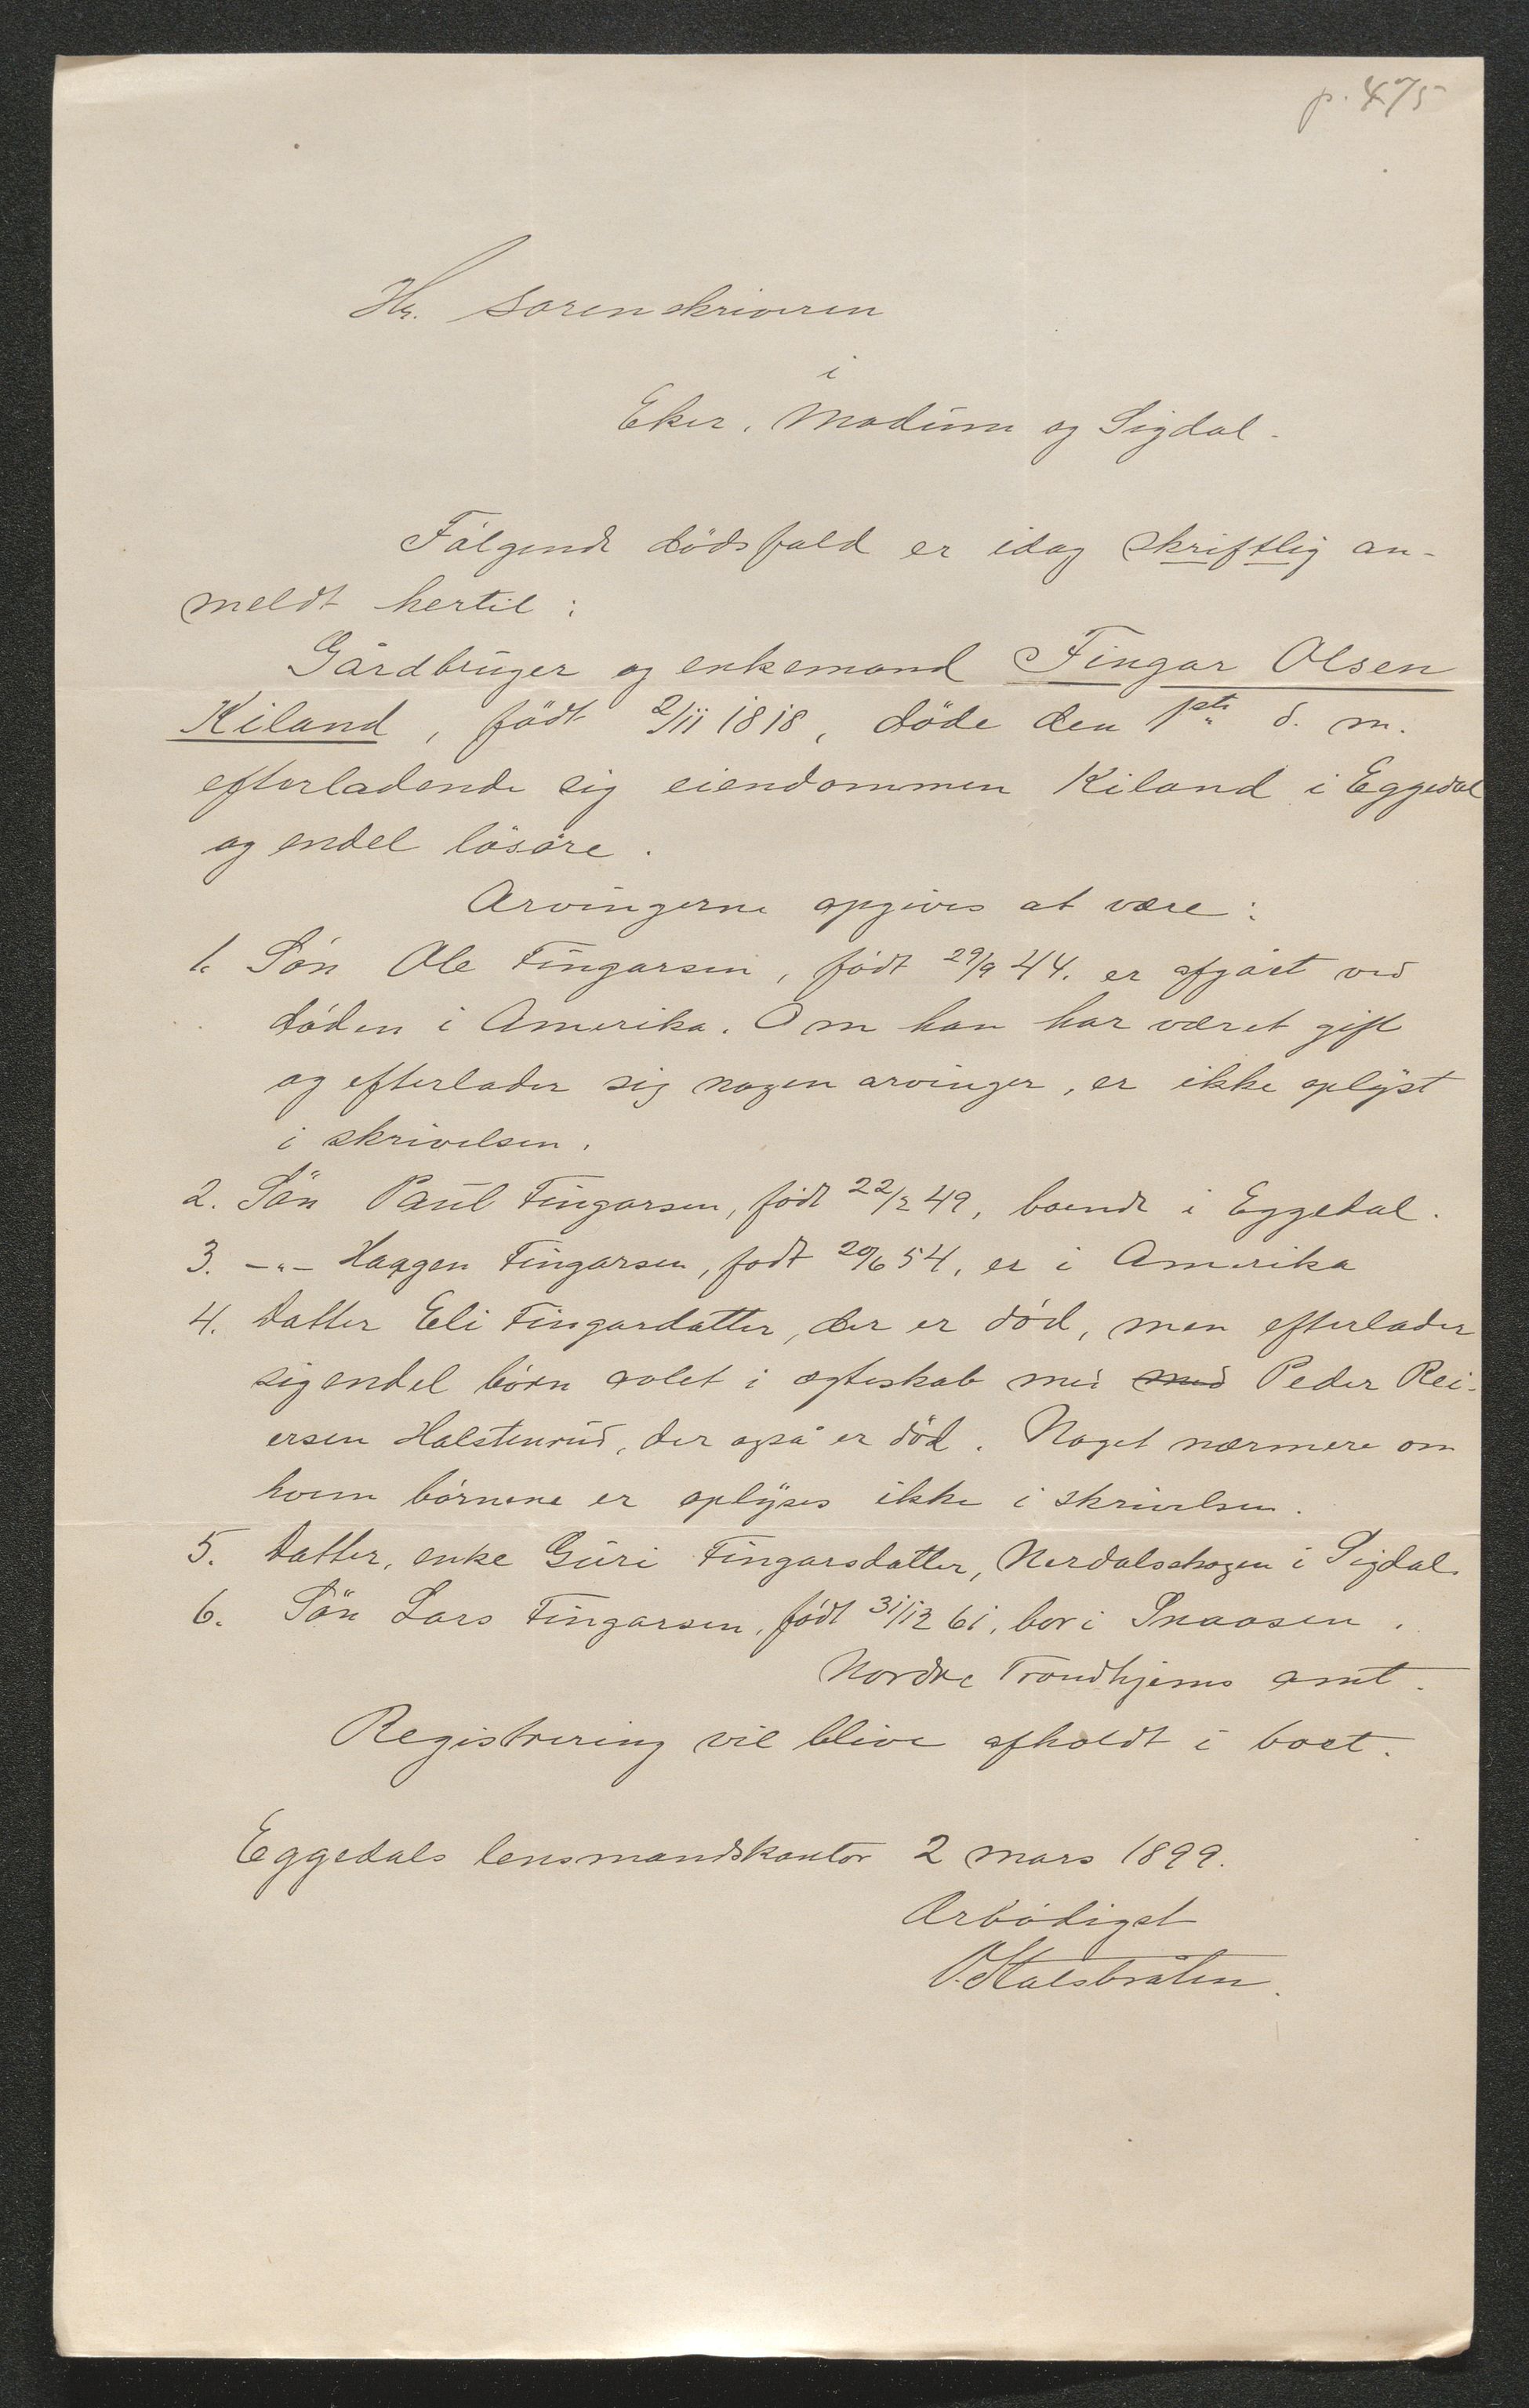 p. 475
Hr. Sorenskriveren
i
Eker, Modum og Sigdal.
Følgende dødsfald er idag skriftlig an-
meldt hertil:
Gårdbruger og enkemand Fingar Olsen
Kiland, født 2/11 1818, døde den 1ste d. m.
efterladende sig eiendommen Kiland i Eggedal
og endel løsøre.
Arvingerne opgives at være:
1. Søn Ole Fingarsen, født 29/9 44. er afgået ved
døden i Amerika. Om han har været gift
og efterlader sig nogen arvinger, er ikke oplyst
i skrivelsen.
2. Søn Paul Fingarsen, født 22/2 49, boende i Eggedal.
3. -"- Haagen Fingarsen, født 20/6 54, er i Amerika
4. Datter Eli Fingardatter, der er død, men efterlader
sig endel børn avlet i ægteskab med med Peder Rei-
ersen Halstenrud, der også er død. Noget nærmere om
hvem børnene er oplyses ikke i skrivelsen.
5. Datter, enke Guri Fingarsdatter, Nerdalsskogen i Sigdal.
6. Søn Lars Fingarsen, født 31/12 61, bor i Snaasen.
Nordre Trondhjems amt.
Registrering vil blive afholdt i boet.
Eggedals lensmandskontor 2 mars 1899.
Ærbødigst
O. Stalsbråten.